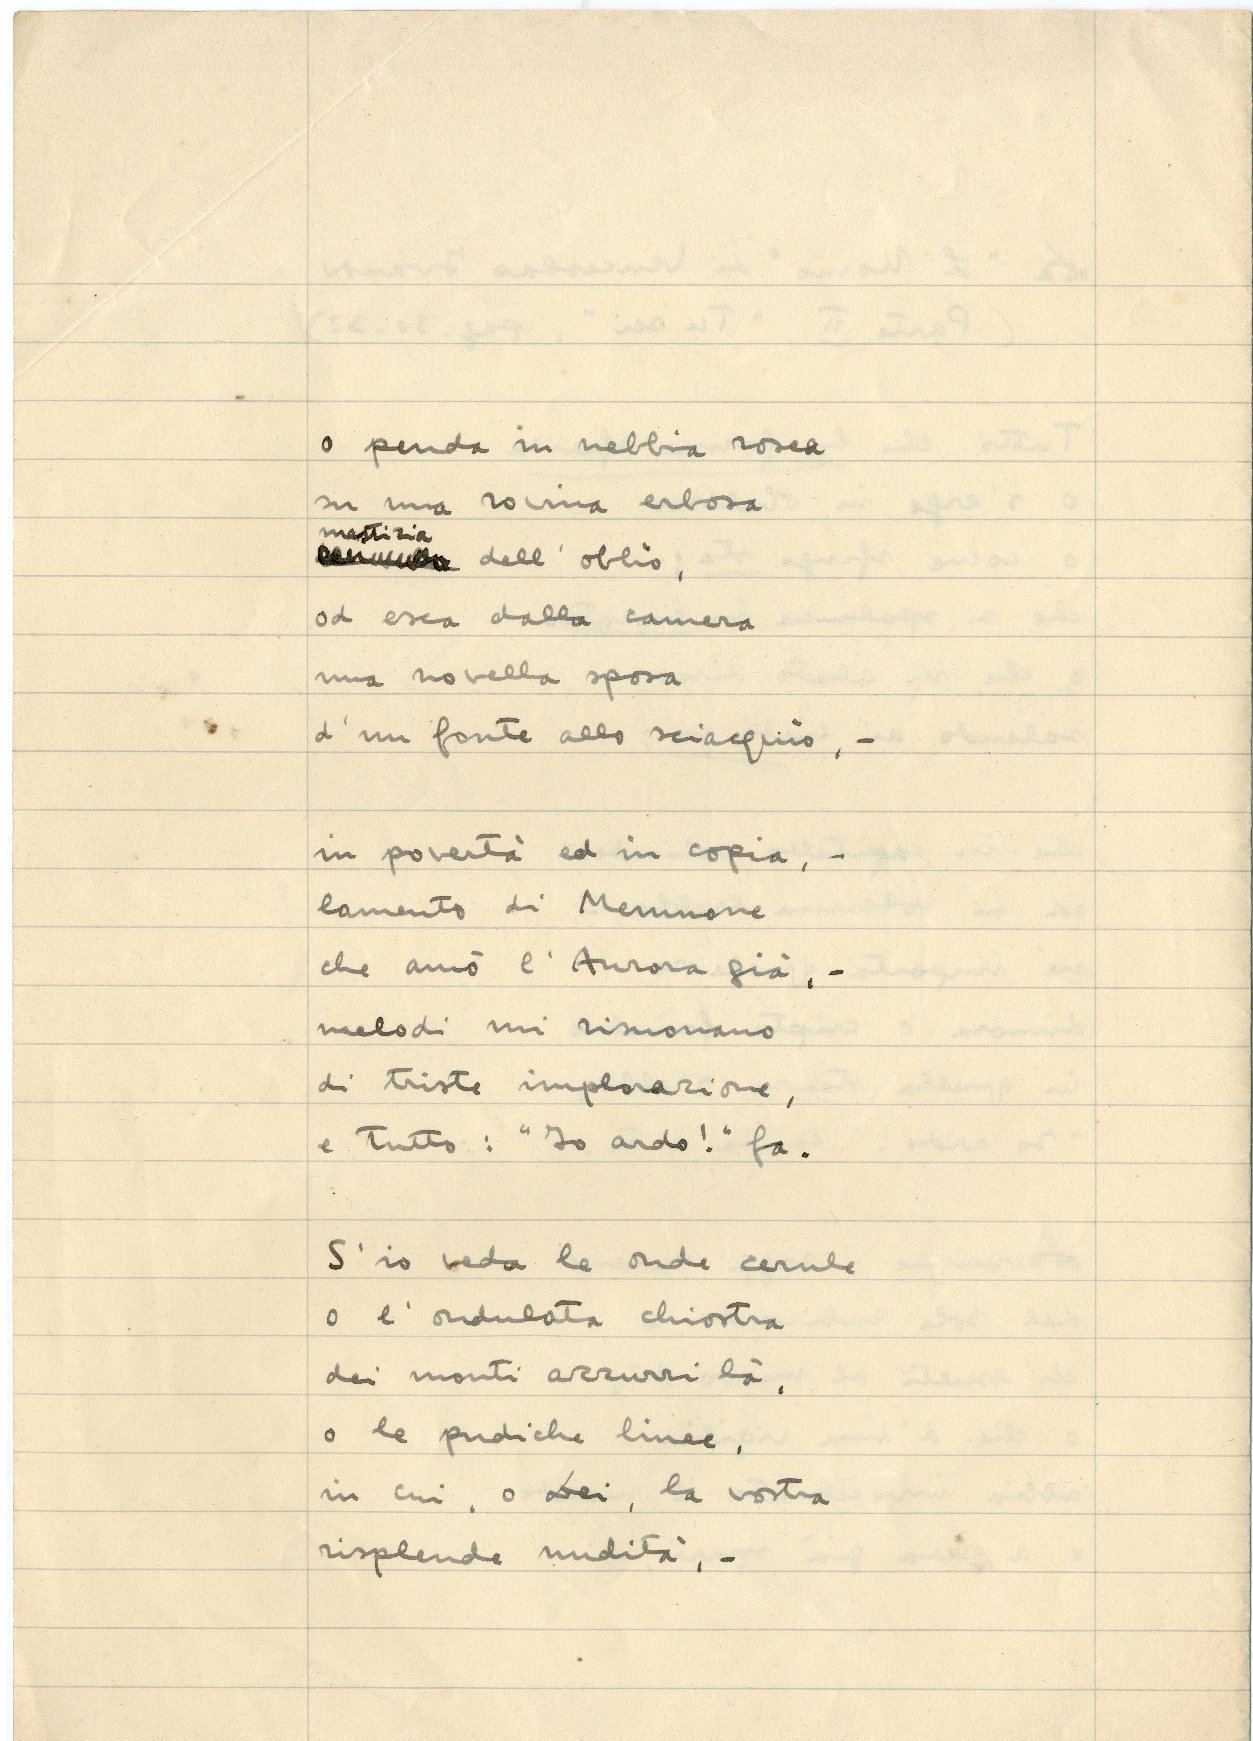 o penda in nebbia rosea
su una rovina erbosa
mestizia
dell'oblìo,
od esca dalla camera
una novella sposa
d'un fonte allo sciacquìo, –
in povertà ed in copia, –
lamento di Memnone
che amò l'Aurora già, –
melodi mi risuonano
di triste implorazione,
e tutto: "Io ardo!" fa.
S'io veda le onde cerule
o l'ondulata chiostra
dei monti azzurri là,
o le pudiche linee,
in cui, o Dei, la vostra
risplende nudità, –